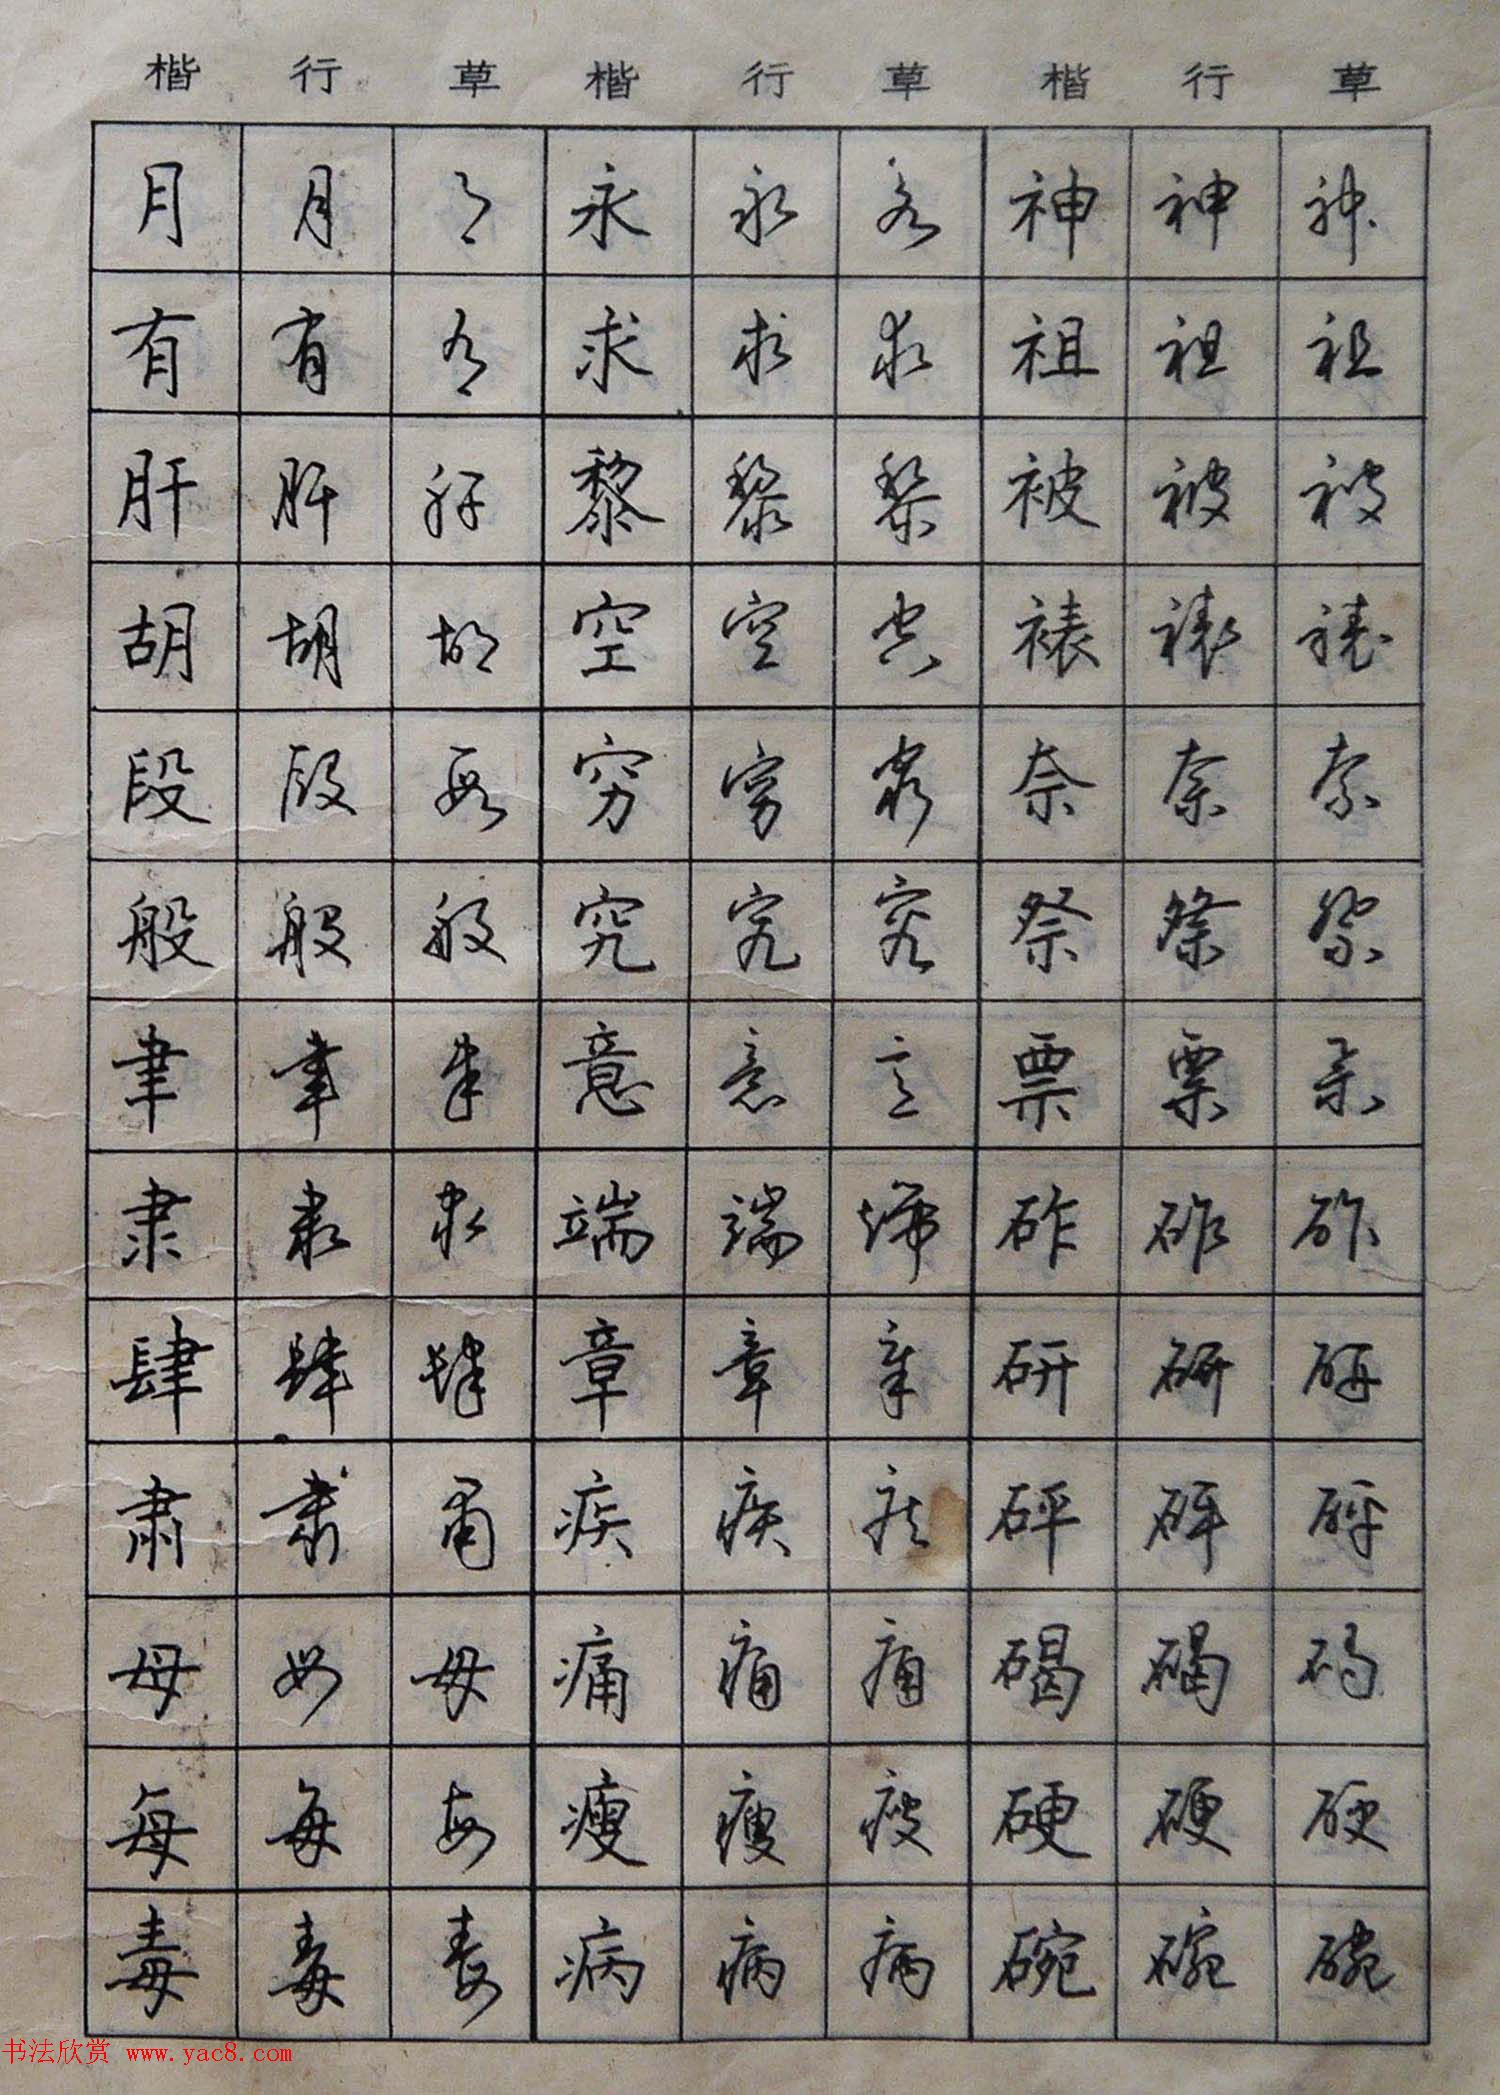 楷 行 草 楷 行 草 楷 行 草
月 月 月 永 永 永 神 神 神
有 有 有 求 求 求 祖 祖 祖
肝 肝 肝 黎 黎 黎 被 被 被
胡 胡 胡 空 空 空 裱 裱 裱
段 段 段 穷 穷 穷 奈 奈 奈
般 般 般 究 究 究 祭 祭 祭
聿 聿 聿 意 意 意 票 票 票
隶 隶 隶 端 端 端 砟 砟 砟
肆 肆 肆 章 章 章 研 研 研
肃 肃 肃 疾 疾 疾 砰 砰 砰
母 母 母 痛 痛 痛 碣 碣 碣
每 每 每 瘦 瘦 瘦 硬 硬 硬
毒 毒 毒 病 病 病 碗 碗 碗
书法欣赏 www.yac8.com